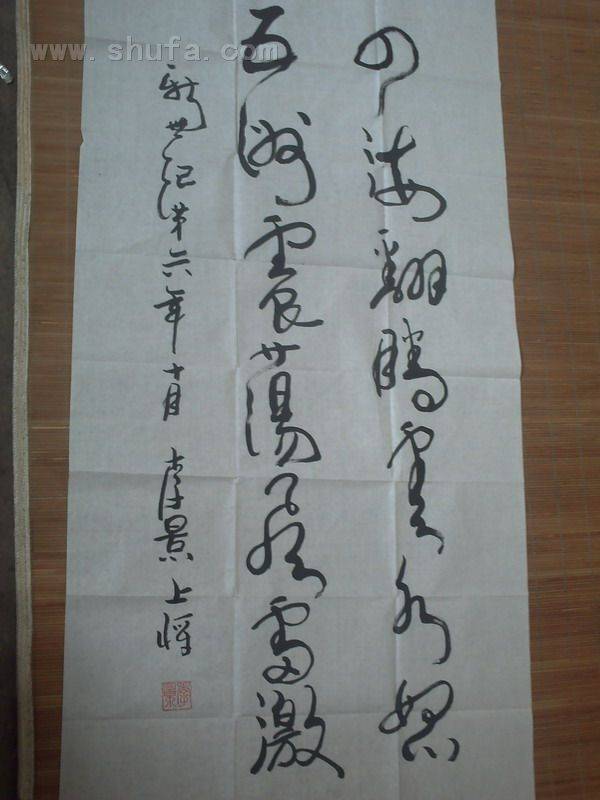 四海翻腾云水怒
五洲震荡风雷激
新世纪第六年十月 李景上将
www.shufa.com